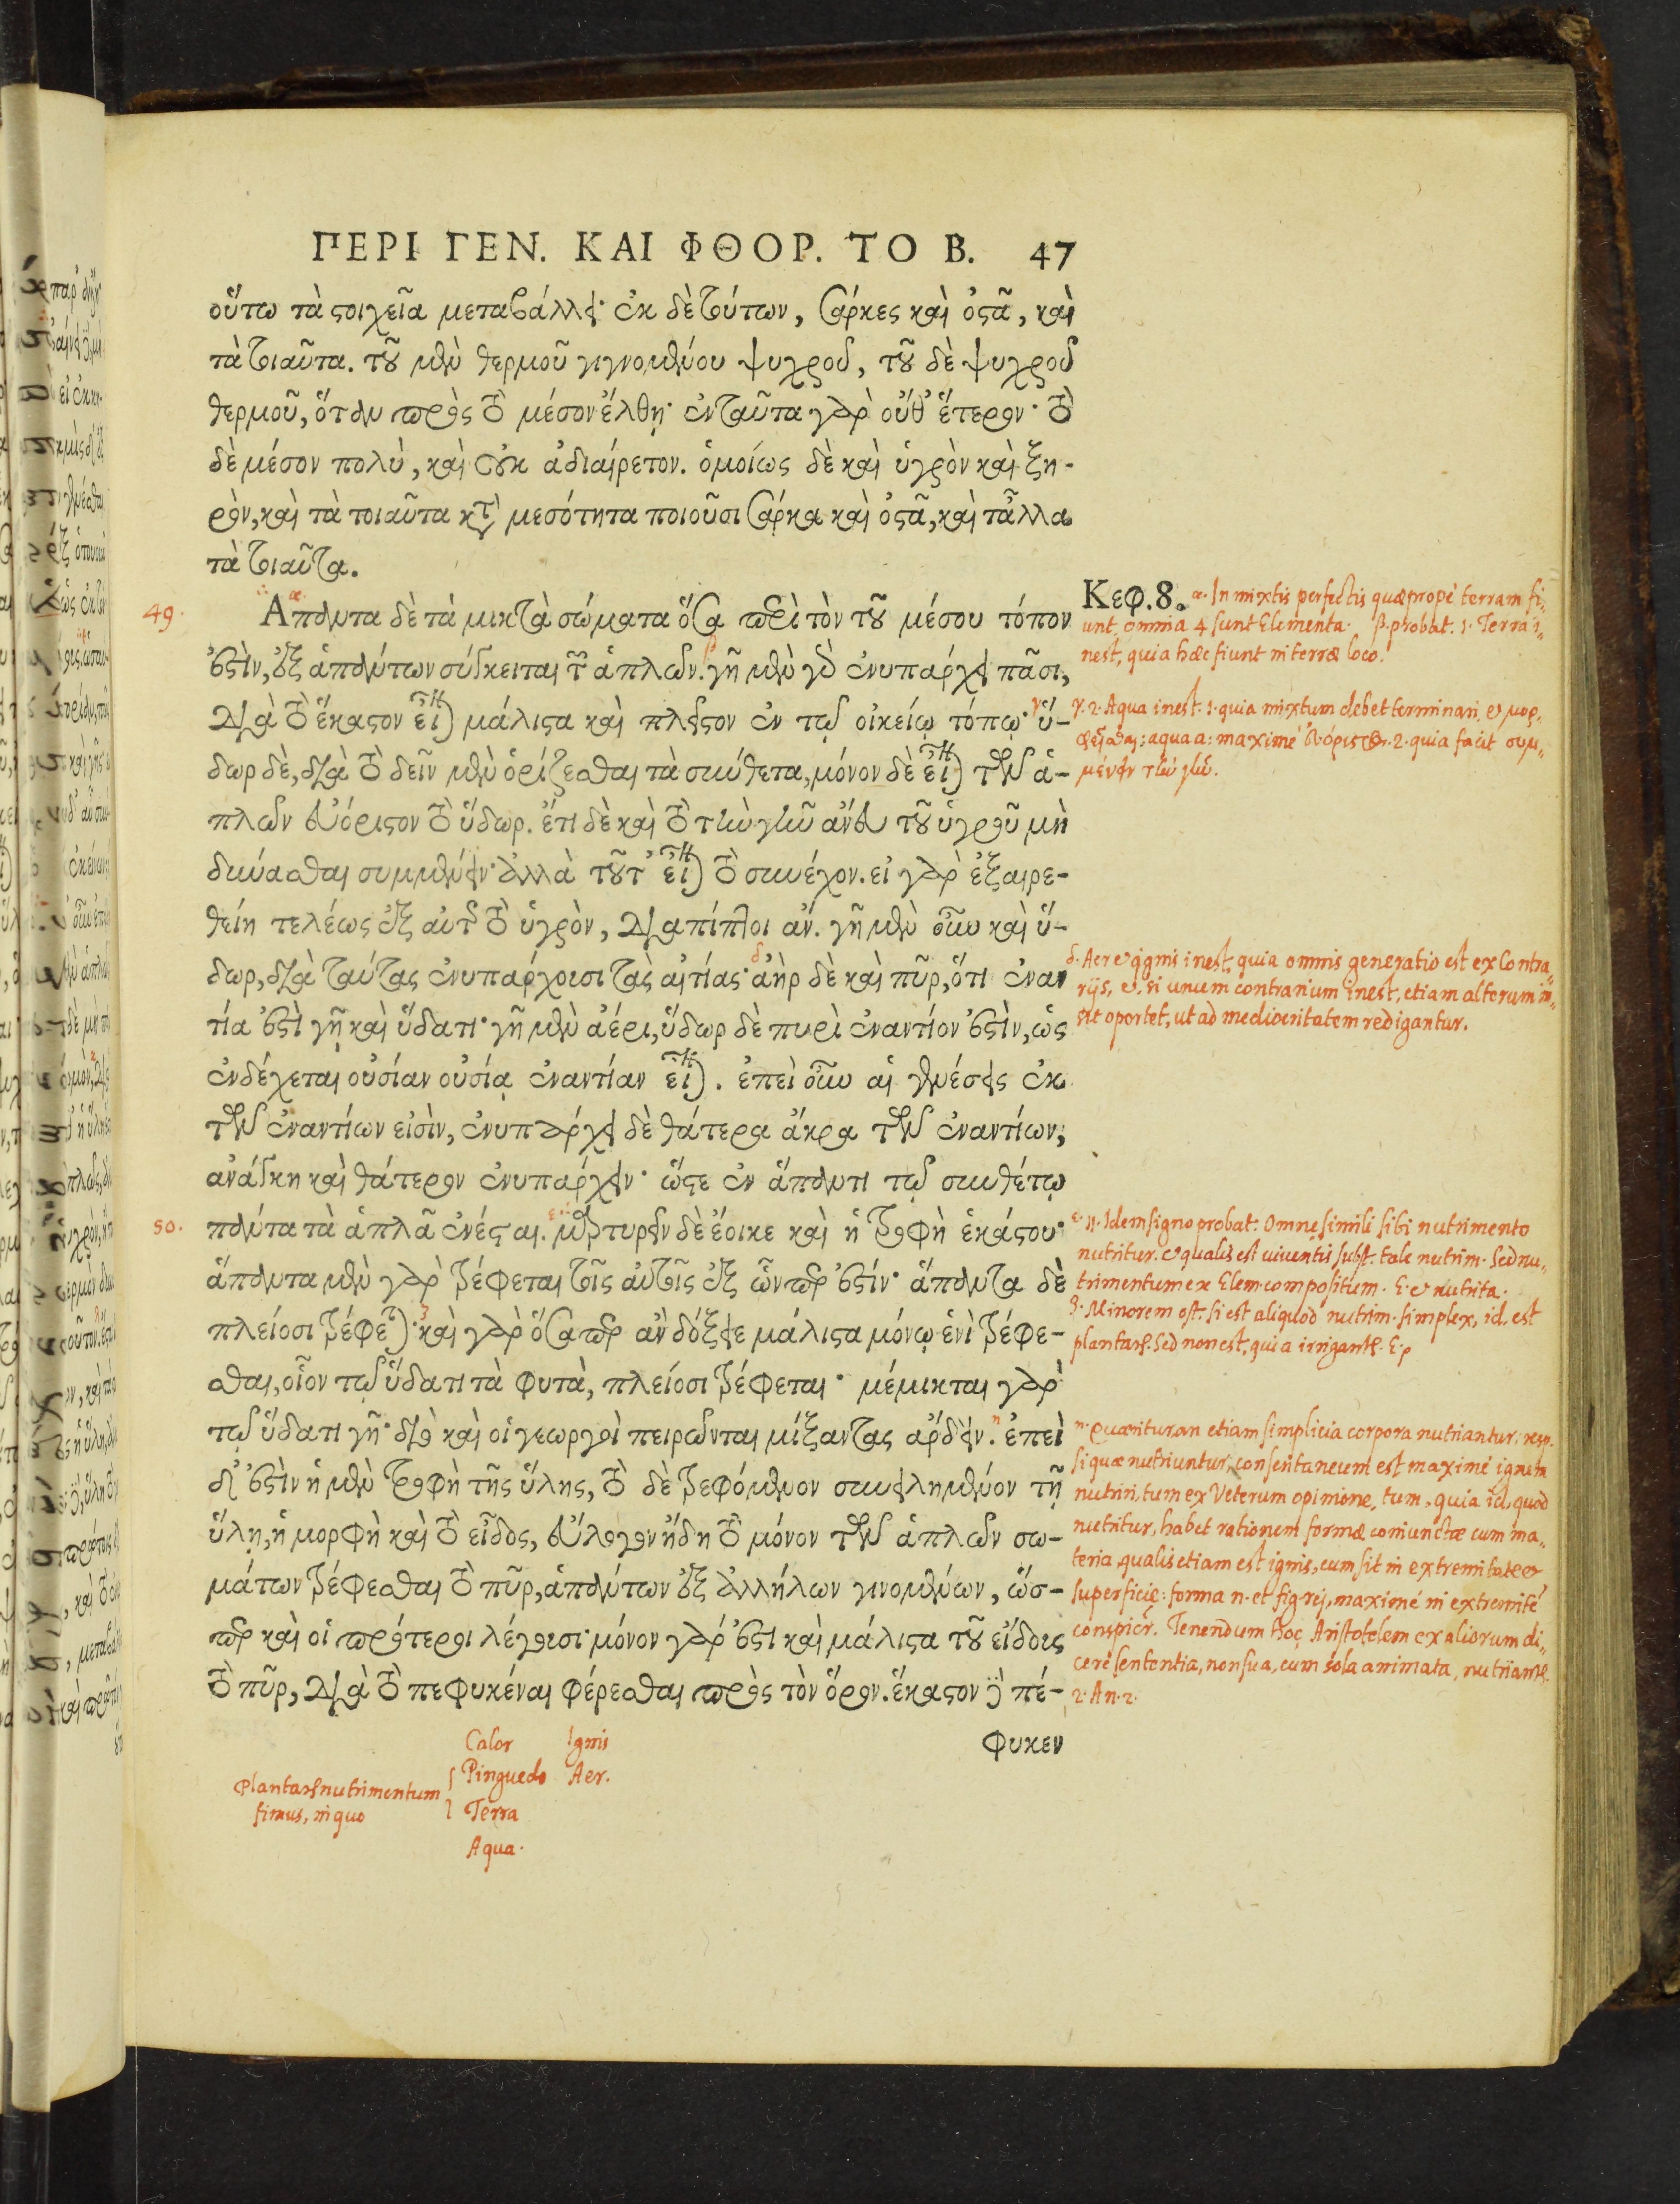 ΠΕΡΙ ΓΕΝ. ΚΑΙ ΦΘΟΡ. ΤΟ Β. 47
οὕτω τὰ στοιχεῖα μεταβάλλει· ἐκ δὲ τούτων, σάρκες καὶ ὀστᾶ, καὶ
τὰ τοιαῦτα. τοῦ μὲν θερμοῦ γιγνομένου ψυχροῦ, τοῦ δὲ ψυχροῦ
θερμοῦ, ὅταν πρὸς τὸ μέσον ἔλθῃ· ἐνταῦτα γὰρ οὐθ' ἕτερον· τὸ
δὲ μέσον πολὺ, καὶ οὐκ ἀδιαίρετον. ὁμοίως δὲ καὶ ὑγρὸν καὶ ξη-
ρὸν, καὶ τὰ τοιαῦτα κατὰ μεσότητα ποιοῦσι σάρκα καὶ ὀστᾶ, καὶ τἆλλα
τὰ τοιαῦτα.
49.
Απαντα δὲ τὰ μικτὰ σώματα ὅσα περὶ τὸν τοῦ μέσου τόπον
ἐστὶν, ἐξ ἁπάντων σύγκειται τῶν ἁπλῶν. γῆ μὲν γὰρ ἐνυπάρχει πᾶσι,
διὰ τὸ ἕκαστον εἶναι μάλιστα καὶ πλεῖστον ἐν τῷ οἰκείῳ τόπῳ· ὕ-
δωρ δὲ, διὰ τὸ δεῖν μὲν ὁρίζεσθαι τὰ σύνθετα, μόνον δὲ εἶναι τῶν ἁ-
πλῶν εὐόριστον τὸ ὕδωρ. ἔτι δὲ καὶ τὸ τὴν γῆν ἄνευ τοῦ ὑγροῦ μὴ
δύνασθαι συμμένειν· ἀλλὰ τοῦτ' εἶναι τὸ συνέχον. εἰ γὰρ ἐξαιρε-
θείη τελέως ἐξ αὐτῆς τὸ ὑγρὸν, διαπίπτοι ἄν. γῆ μὲν οὖν καὶ ὕ-
δωρ, διὰ ταύτας ἐνυπάρχουσι τὰς αἰτίας· ἀὴρ δὲ καὶ πῦρ, ὅτι ἐναν
τία ἐστὶ γῇ καὶ ὕδατι· γῆ μὲν ἀέρι, ὕδωρ δὲ πυρὶ ἐναντίον ἐστὶν, ὡς
ἐνδέχεται οὐσίαν οὐσίᾳ ἐναντίαν εἶναι. ἐπεὶ οὖν αἱ γενέσεις ἐκ
τῶν ἐναντίων εἰσὶν, ἐνυπάρχει δὲ θάτερα ἄκρα τῶν ἐναντίων,
ἀνάγκη καὶ θάτερον ἐνυπάρχειν· ὥστε ἐν ἅπαντι τῷ συνθέτῳ
50.
πάντα τὰ ἁπλᾶ ἐνέσται. μαρτυρεῖν δὲ ἔοικε καὶ ἡ τροφὴ ἑκάστου·
ἅπαντα μὲν γὰρ τρέφεται τοῖς αὐτοῖς ἐξ ὧνπερ ἐστίν· ἅπαντα δὲ
πλείοσι τρέφεται· καὶ γὰρ ὅσαπερ ἂν δόξειε μάλιστα μόνῳ ἑνὶ τρέφε-
σθαι, οἷον τῷ ὕδατι τὰ φυτὰ, πλείοσι τρέφεται· μέμικται γὰρ
τῷ ὕδατι γῆ· διὸ καὶ οἱ γεωργοὶ πειρῶνται μίξαντας ἄρδειν. ἐπεὶ
δ' ἐστὶν ἡ μὲν τροφὴ τῆς ὕλης, τὸ δὲ τρεφόμενον συνειλημμένον τῇ
ὕλῃ, ἡ μορφὴ καὶ τὸ εἶδος, εὔλογον ἤδη τὸ μόνον τῶν ἁπλῶν σω-
μάτων τρέφεσθαι τὸ πῦρ, ἁπάντων ἐξ ἀλλήλων γινομένων, ὥσ-
περ καὶ οἱ πρότεροι λέγουσι· μόνον γάρ ἐστι καὶ μάλιστα τοῦ εἴδους
τὸ πῦρ, διὰ τὸ πεφυκέναι φέρεσθαι πρὸς τὸν ὅρον. ἕκαστον δὲ πέ-
φυκεν
Κεφ. 8. α. In mixtis perfectis quæ propè terram fi-
unt omnia 4 sunt Elementa. β. probat. 1. Terra i-
nest, quia hæc fiunt in terræ loco.
γ. 2. Aqua inest. 1. quia mixtum debet terminari, & μορ-
φεῖσθαι: aqua a: maximè εὐόριστος. 2. quia facit συμ-
μένειν τὴν γῆν.
δ. Aer & ignis inest, quia omnis generatio est ex Contra-
rijs, &, si unum contrarium inest, etiam alterum in-
sit oportet, ut ad mediocritatem redigantur.
ε. Idem signo probat: Omne simili sibi nutrimento
nutritur. & qualis est viventis subst. tale nutrim. Sed nu-
trimentum ex Elem. compositum. E. & nutrita.
ζ. Minorem ost. si est aliquod nutrim. simplex, id est
plantarum. Sed non est, quia irrigantur. E.
η. Quæritur an etiam simplicia corpora nutriantur. resp.
si quæ nutriuntur, consentaneum est maximè ignem
nutriri, tum ex Veterum opinione, tum, quia id, quod
nutritur, habet rationem formæ coniunctæ cum ma-
teria, qualis etiam est ignis, cum sit in extremitate &
superficie: forma n. et figrej, maximè in extremité
conspicr. Tenendum hoc Aristotelem ex aliorum di-
cere sententia, non sua, cum sola animata, nutriantur.
2. An. 2.
Plantarum nutrimentum
fimus, in quo
Calor Ignis
Pinguedo Aer.
Terra
Aqua.